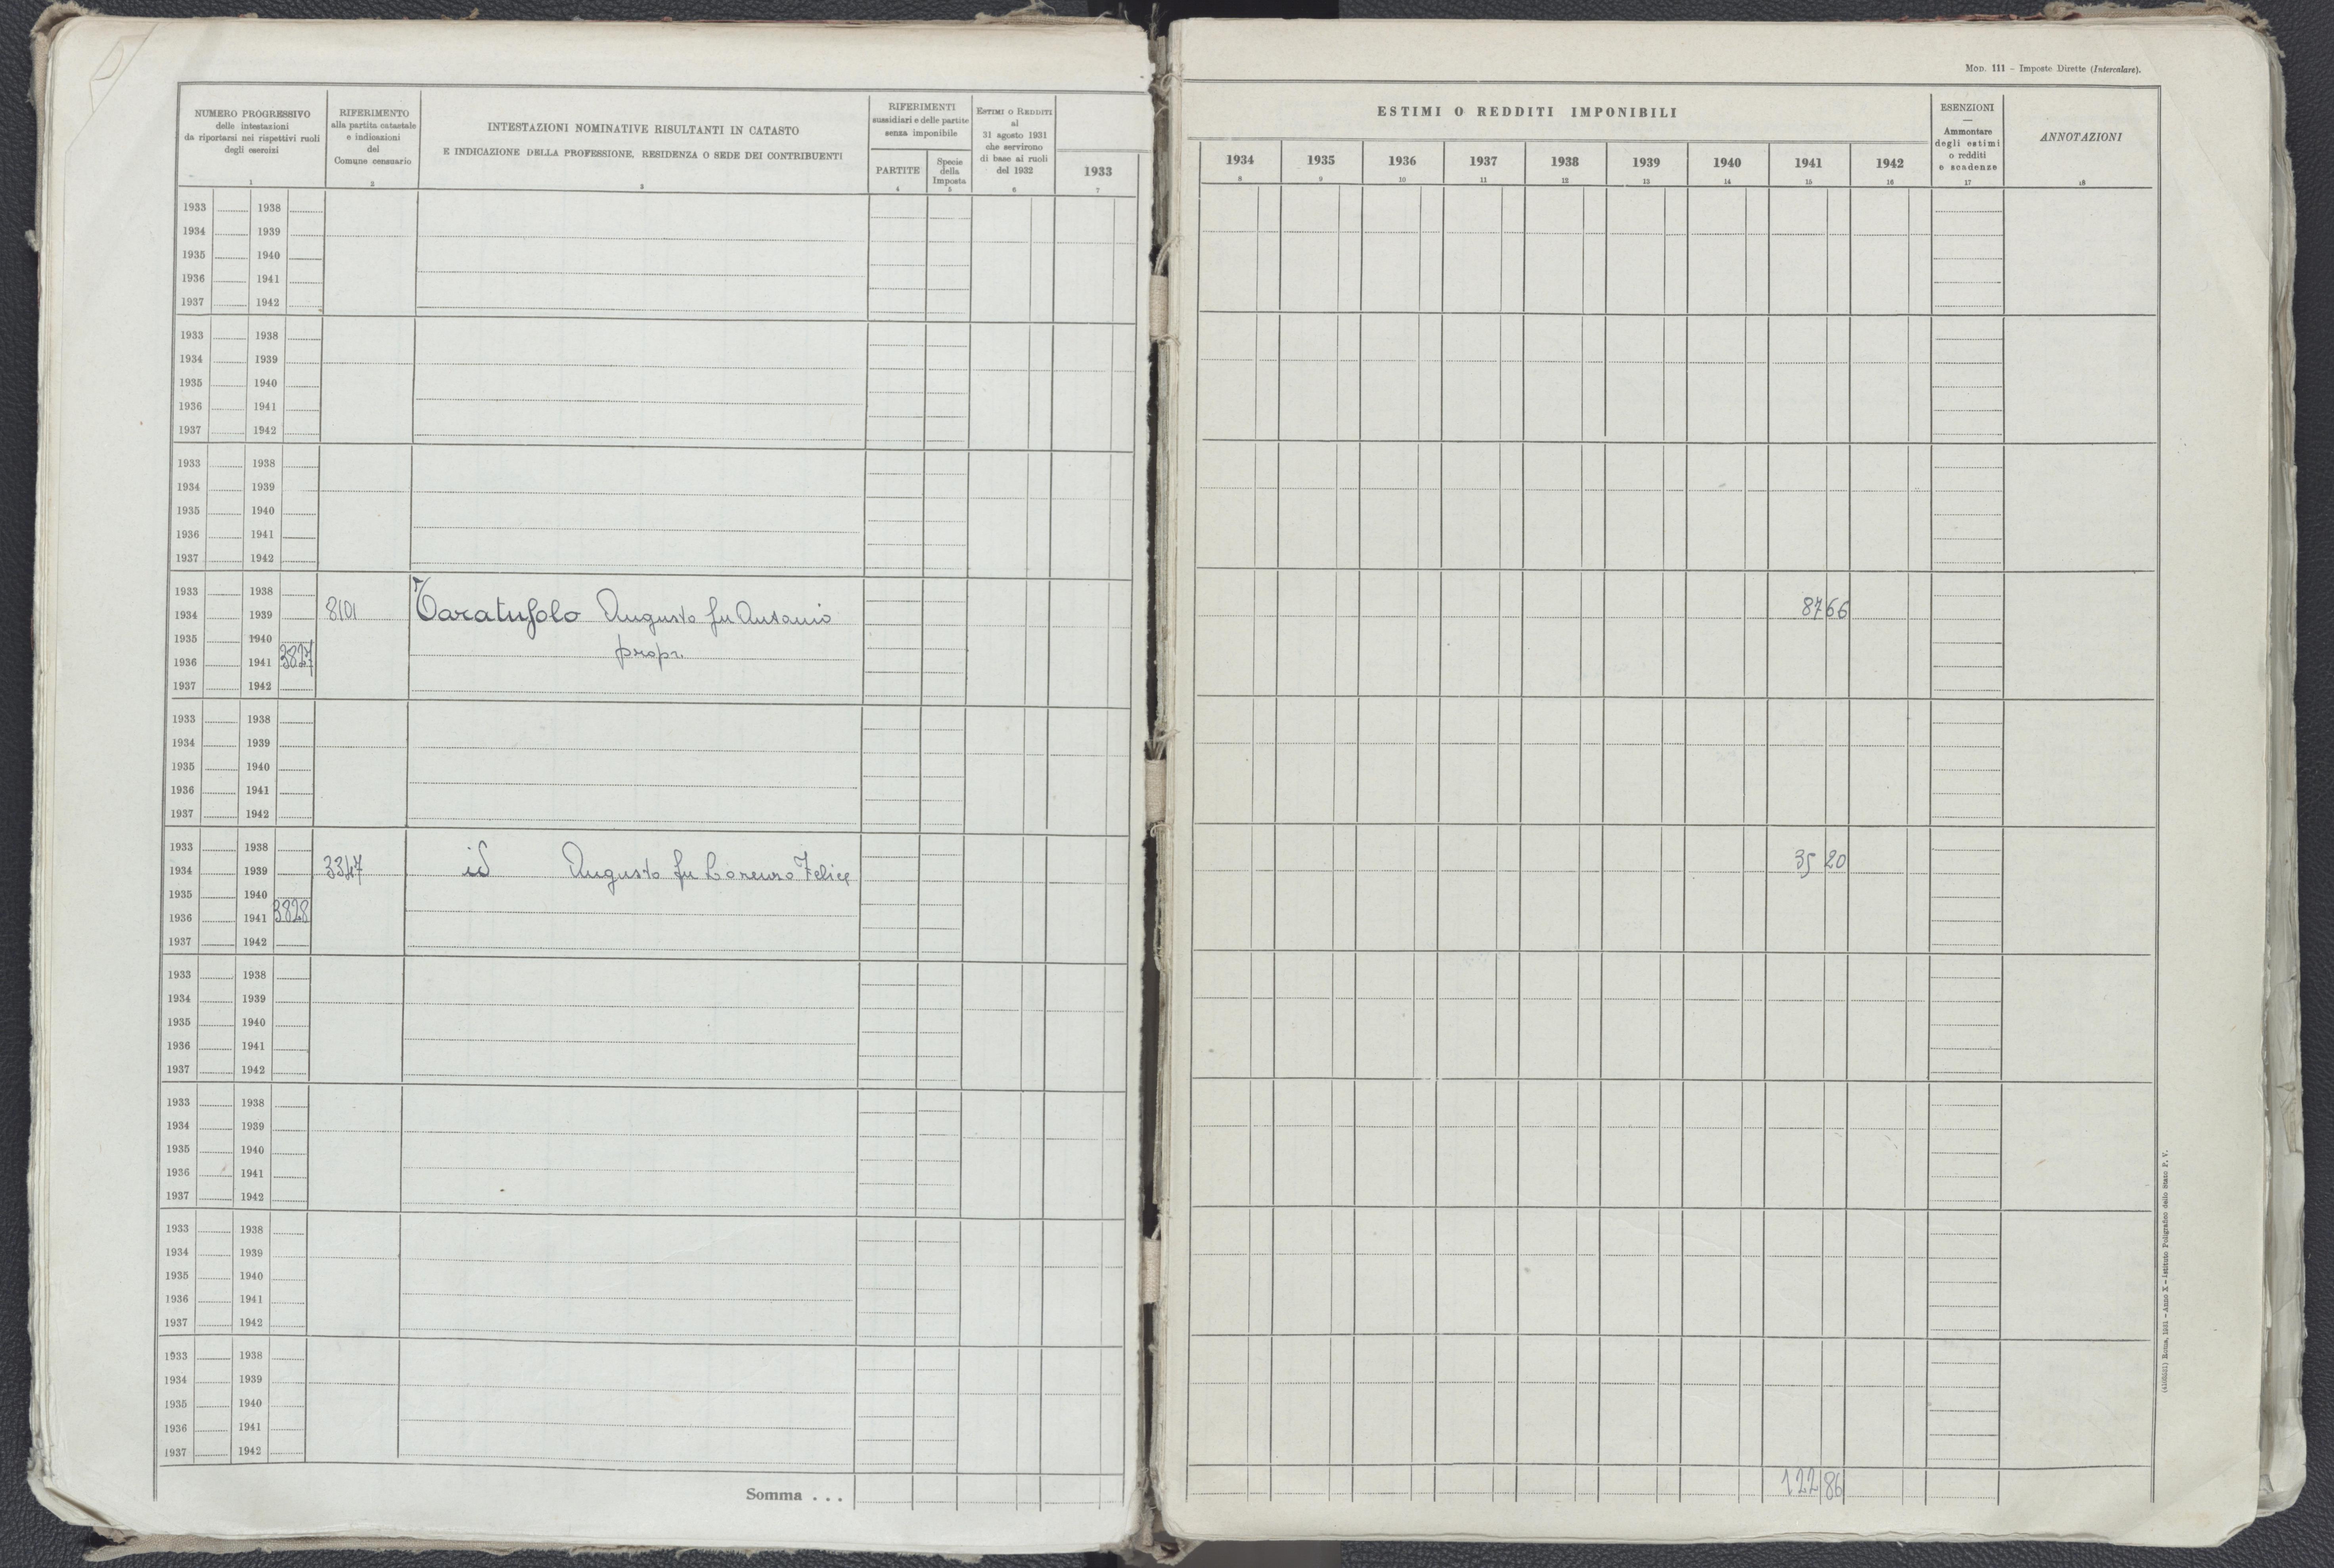 NUMERO PROGRESSIVO
delle intestazioni
da riportarsi nei rispettivi ruoli
degli esercizi
1
RIFERIMENTO
alla partita catastale
e indicazioni
del
Comune censuario
2
INTESTAZIONI NOMINATIVE RISULTANTI IN CATASTO
E INDICAZIONE DELLA PROFESSIONE, RESIDENZA O SEDE DEI CONTRIBUENTI
3
RIFERIMENTI
sussidiari e delle partite
senza imponibile
PARTITE
4
Specie
della
Imposta
5
ESTIMI O REDDITI
al
31 agosto 1931
che servirono
di base ai ruoli
del 1932
6
1933
7
1933 1938
1934 1939
1935 1940
1936 1941
1937 1942
1933 1938
1934 1939
1935 1940
1936 1941
1937 1942
1933 1938
1934 1939
1935 1940
1936 1941
1937 1942
1933 1938
1934 1939 8101 Taratufolo Augusto fu Antonio
1935 1940
1936 1941 3827 propr.
1937 1942
1933 1938
1934 1939
1935 1940
1936 1941
1937 1942
1933 1938
1934 1939 3347 id Augusto fu Lorenzo Felice
1935 1940
1936 1941 3828
1937 1942
1933 1938
1934 1939
1935 1940
1936 1941
1937 1942
1933 1938
1934 1939
1935 1940
1936 1941
1937 1942
1933 1938
1934 1939
1935 1940
1936 1941
1937 1942
1933 1938
1934 1939
1935 1940
1936 1941
1937 1942
Somma . . .
MOD. 111 - Imposte Dirette (Intercalare).
ESTIMI O REDDITI IMPONIBILI
1934 1935 1936 1937 1938 1939 1940 1941 1942
8 9 10 11 12 13 14 15 16
ESENZIONI
—
Ammontare
degli estimi
o redditi
e scadenze
17
ANNOTAZIONI
18
87 66
35 20
122 86
Roma, 1931 - Anno X - Istituto Poligrafico dello Stato P. V.